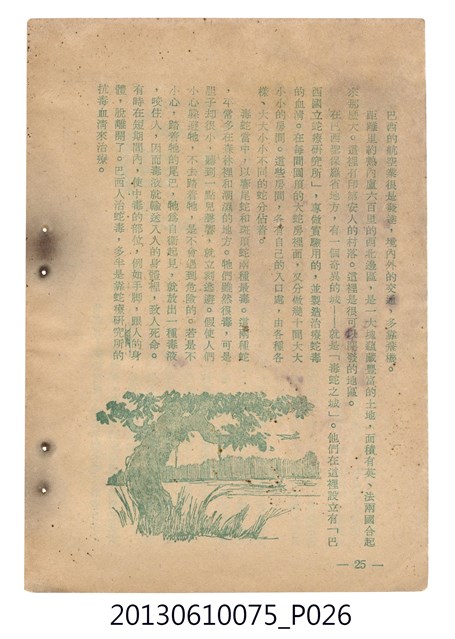 巴西的航空業很是發達，境內外的交通，多靠
距離里約熱內盧六百里的西北邊區，是一大塊蘊藏豐富的土地，面積有英、法兩國合起
來那麼大。這裡有印第安人的村落。這裡是很可以發展的地區。
在巴西聖保羅省地方，有一個奇異的城——就是「毒蛇之城」。他們在這裡設立有「巴
西國立蛇療研究所」，專做實驗用的，並製造治療蛇毒
的血清。在每間圓頂的大蛇房裡面，又分做幾十間大大
小小的房間。這些房間，各有自己的入口處，由各種各
樣、大大小小不同的蛇分佔着。
毒蛇當中，以響尾蛇和斑頂蛇兩種最毒。這兩種蛇
，年常多在森林裡和潮濕的地方。牠們雖然很毒，可是
膽子却很小，聽到一點點聲響，就立刻逃避。假使人們
小心躲避牠，不去踏着牠，是不會遇到危險的。若是不
小心，踏着牠的尾巴，牠為自衛起見，就放出一種毒液
，咬住人，因而毒液就輸送入人的身體裡，致人死命。
有時在短期間內，使中毒的部位，例如手脚，跟人的身
體，脫離開了。巴西人治蛇毒，多半是靠蛇療研究所的
抗毒血清來治療。
— 25 —
20130610075_P026